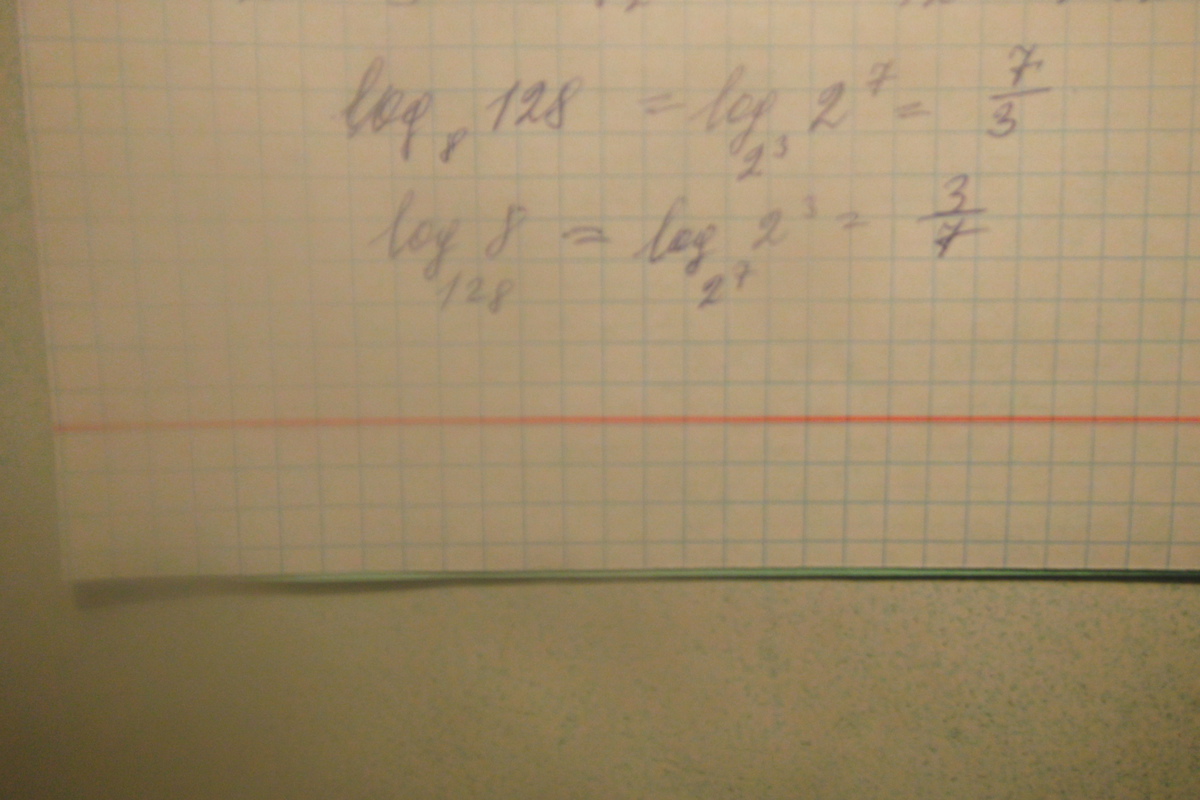 log₈ 128 = log_{2³} 2⁷ = 7/3
log₁₂₈ 8 = log_{2⁷} 2³ = 3/7